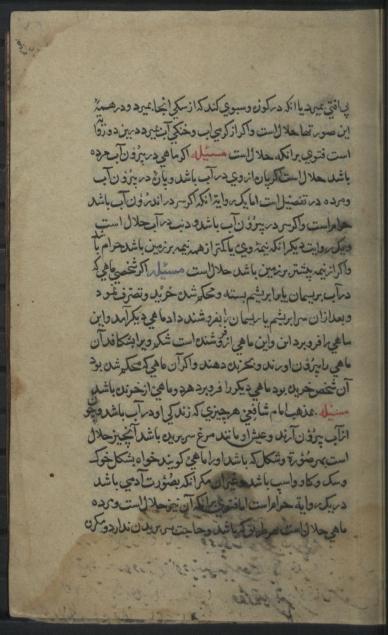 بی آفتی بمیرد یا آنکه در کوزه و سبوی کند که از سکی آنجا بمیرد و در همهٔ
این صورتها حلال است و اکر از کرمی آب و خنکی آب بمیرد درین دو روایة
است فتوی برانکه حلال است مسئله اکر ماهی در بیرون آب مرده
باشد حلال است اکر پارهٔ از وی در آب باشد و پارهٔ در بیرون آب
و مرده در تفصیل است اما یک روایة آنکه اکر سر در اندرون آب باشد
حرام است و اکر سر در بیرون آب باشد و دنب در آب حلال است
و یک روایت دیکر آنکه نیمهٔ وی یا کمتر از همه نیمه بر زمین باشد حرام باشد
و اکر از نیمه بیشتر بر زمین باشد حلال است مسئله اکر شخصی ماهی که
در آب بریسمان یا برابریشم بسته و محکم شده خرید و تصرف نمود
و بعد ازان سر ابریشم یا ریسمان بفروشنده داد ماهی دیکر آمد و این
ماهی را فرو برد این و این ماهی از فروشنده است شکم ویرا بشکافد آن
ماهی را بیرون آورند و بخرنده دهند و اکر آن ماهی که محکم شده بود
آن شخص خریده بود ماهی دیکر را فرو برد هر دو ماهی از خرنده باشد
مسئله بمذهب امام شافعی هر چیزی که زندکی او در آب باشد و چو
از آب بیرون آرند و عیش او مانند مرغ سر بریده باشد آنچیز حلال
است بهر صورة و شکل که باشد او را ماهی کویند خواه بشکل خوک
و سک و کاو و اسب باشد و غیر آن مکر آنکه بصورت آدمی باشد
در یک روایة حرام است اما فتوی برانکه آن نیز حلال است و مرده
ماهی حلال است هر طریق که باشد و حاجت سر بریدن ندارد و مکرن